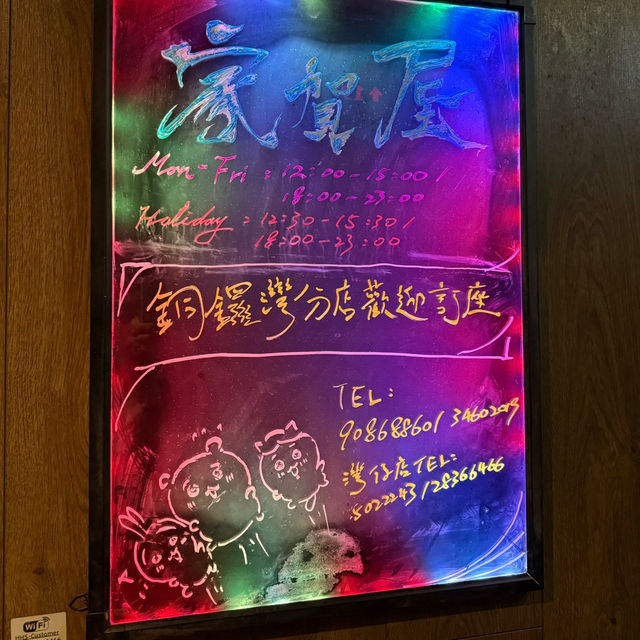 賀屋
Mon-Fri : 12:00-15:00 /
18:00-23:00
Holiday : 12:30-15:30 /
18:00-23:00
銅鑼灣分店歡迎訂座
TEL:
90868860 / 34602019
灣仔店TEL:
/ 28366466
WiFi
HHS-Customer